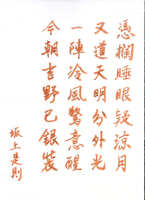 憑欄睡眼疑涼月
又道天明分外光
一陣冷風驚意醒
今朝吉野已銀裝
坂上是則